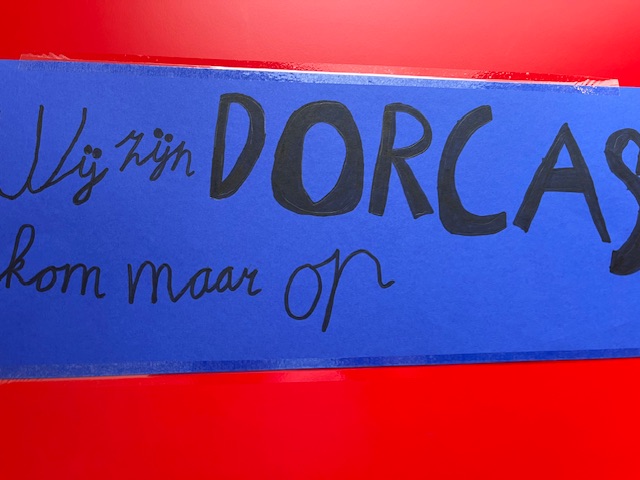 Wij zijn DORCAS
kom maar op